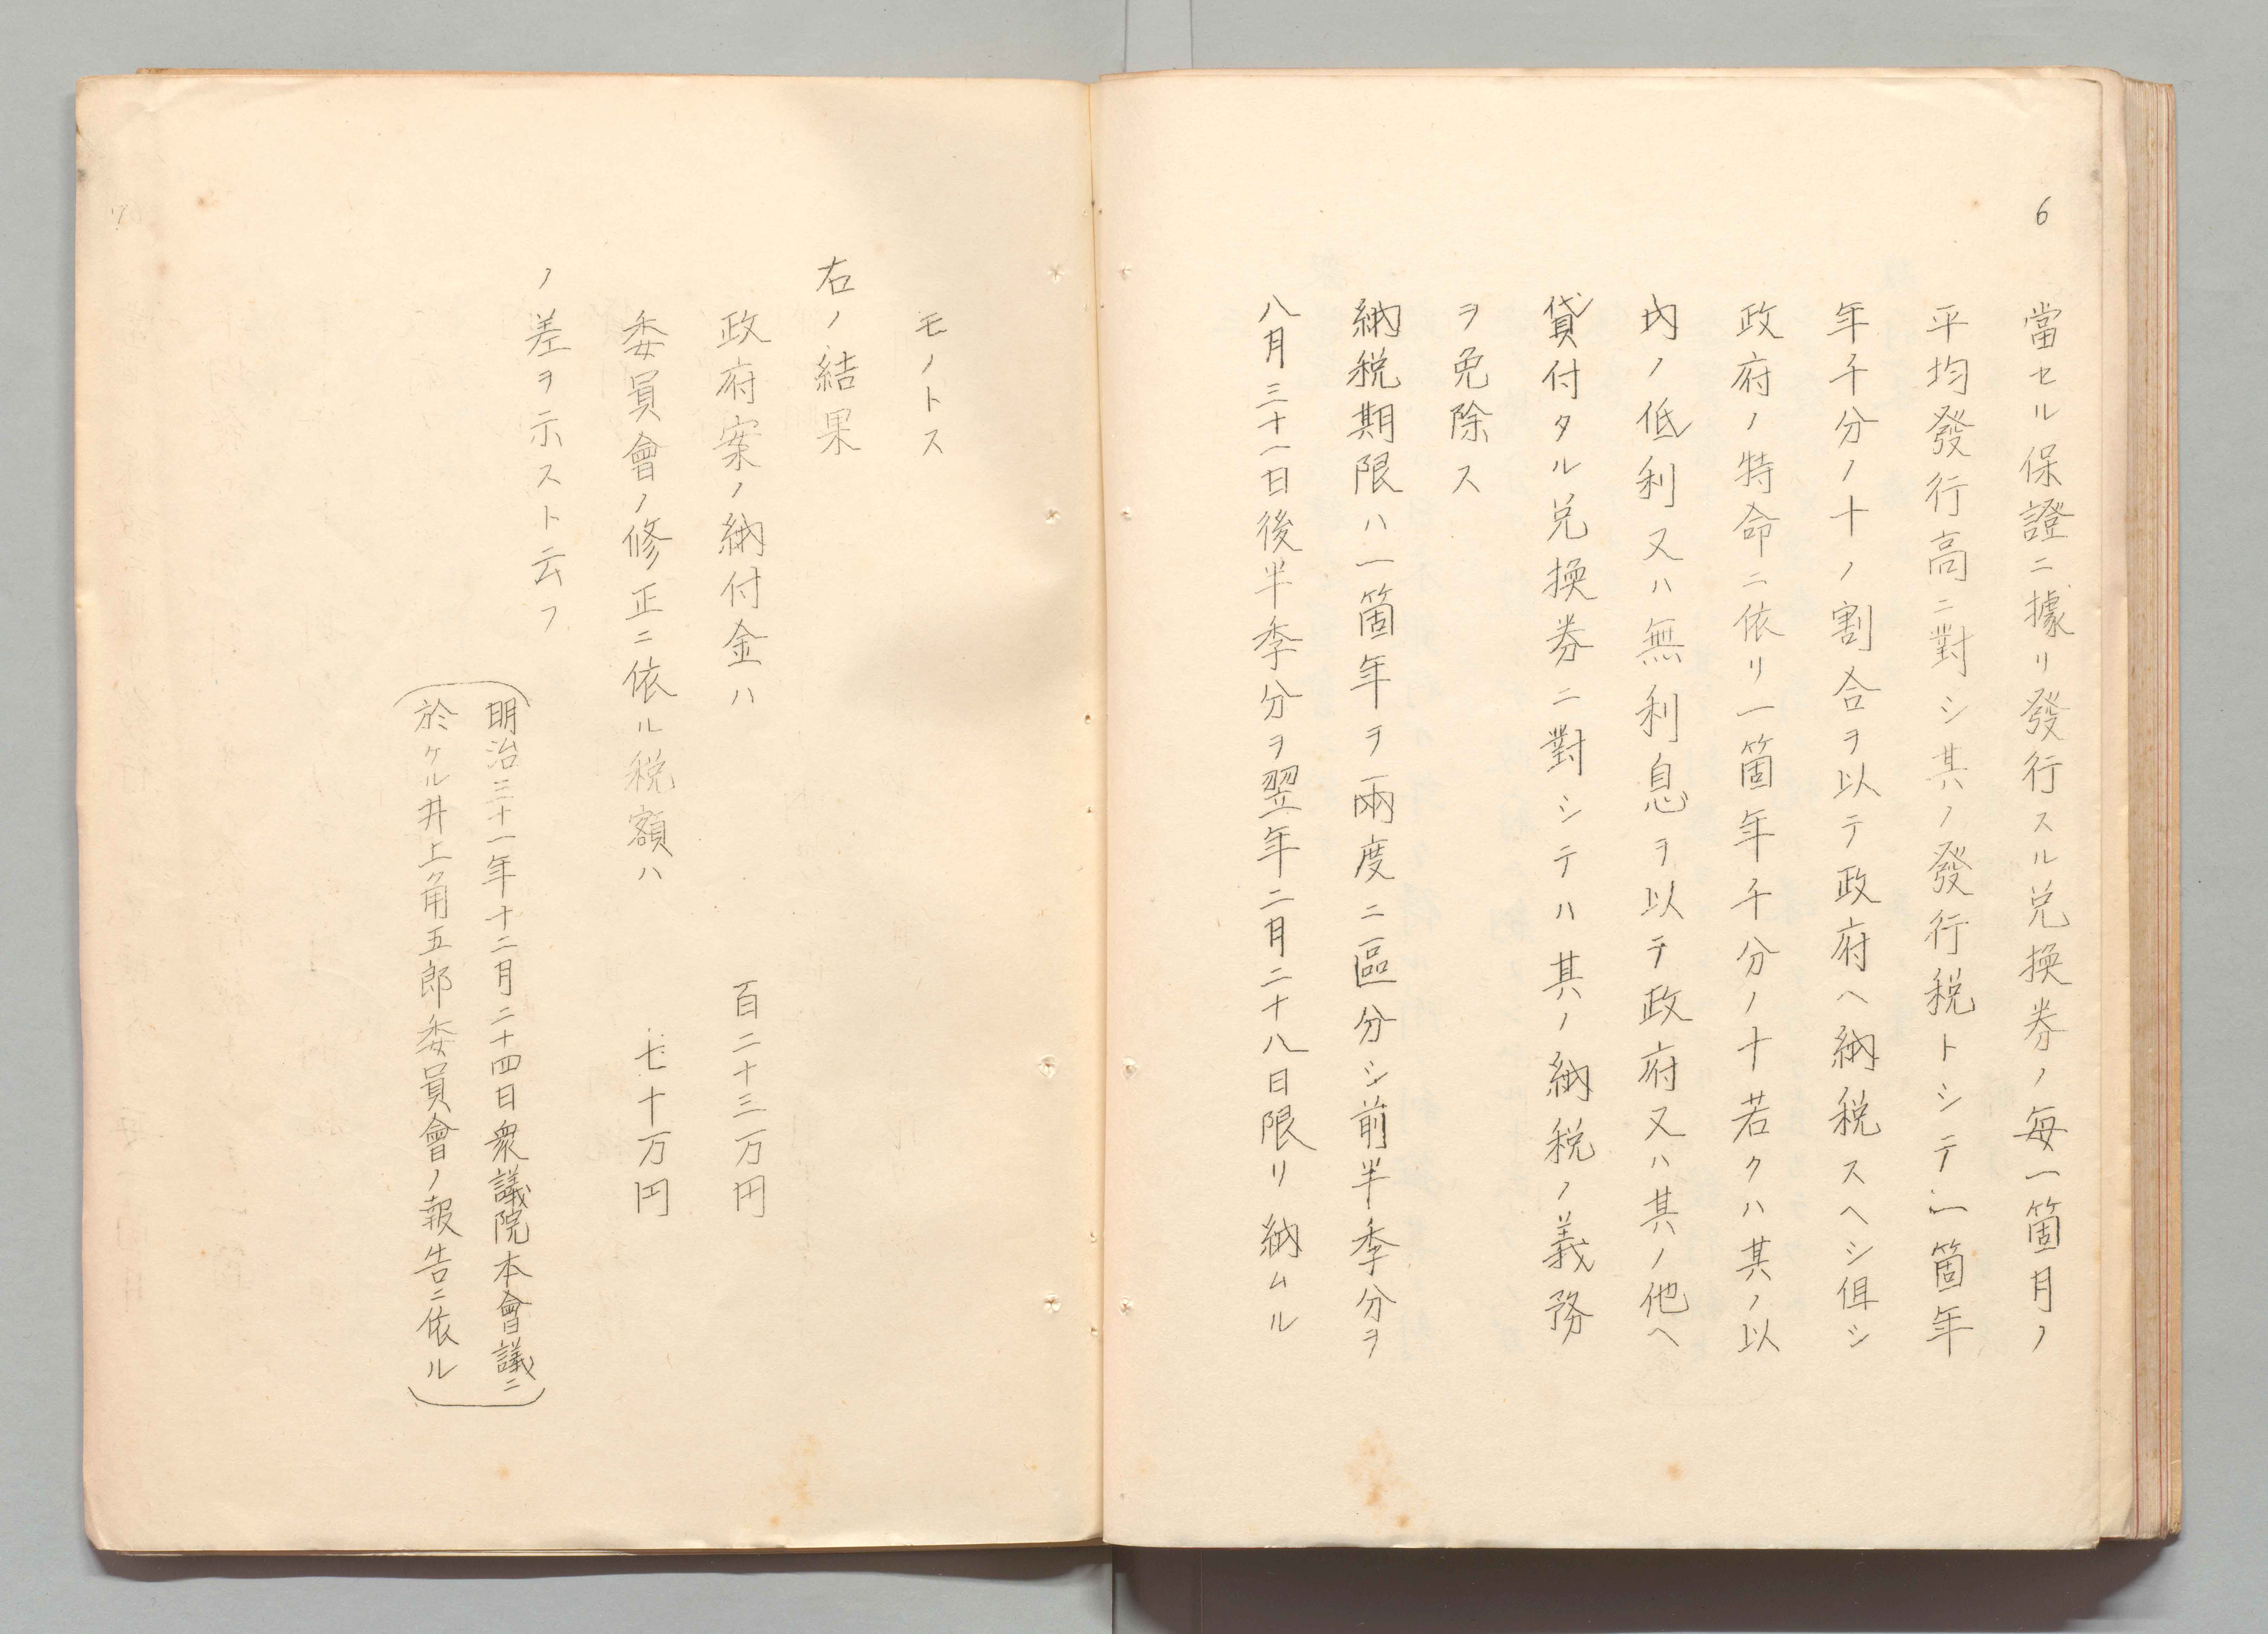 6
當セル保證ニ據リ發行スル兌換券ノ每一箇月ノ
平均發行高ニ對シ其ノ發行税トシテ一箇年
年千分ノ十ノ割合ヲ以テ政府ヘ納税スヘシ但シ
政府ノ特命ニ依リ一箇年千分ノ十若クハ其ノ以
内ノ低利又ハ無利息ヲ以テ政府又ハ其ノ他ヘ
貸付タル兌換券ニ對シテハ其ノ納税ノ義務
ヲ免除ス
納税期限ハ一箇年ヲ兩度ニ區分シ前半季分ヲ
八月三十一日後半季分ヲ翌年二月二十八日限リ納ムル
モノトス
右ノ結果
政府案ノ納付金ハ 百二十三万円
委員會ノ修正ニ依ル税額ハ 七十万円
ノ差ヲ示スト云フ
(明治三十一年十二月二十四日衆議院本會議ニ
於ケル井上角五郎委員會ノ報告ニ依ル)